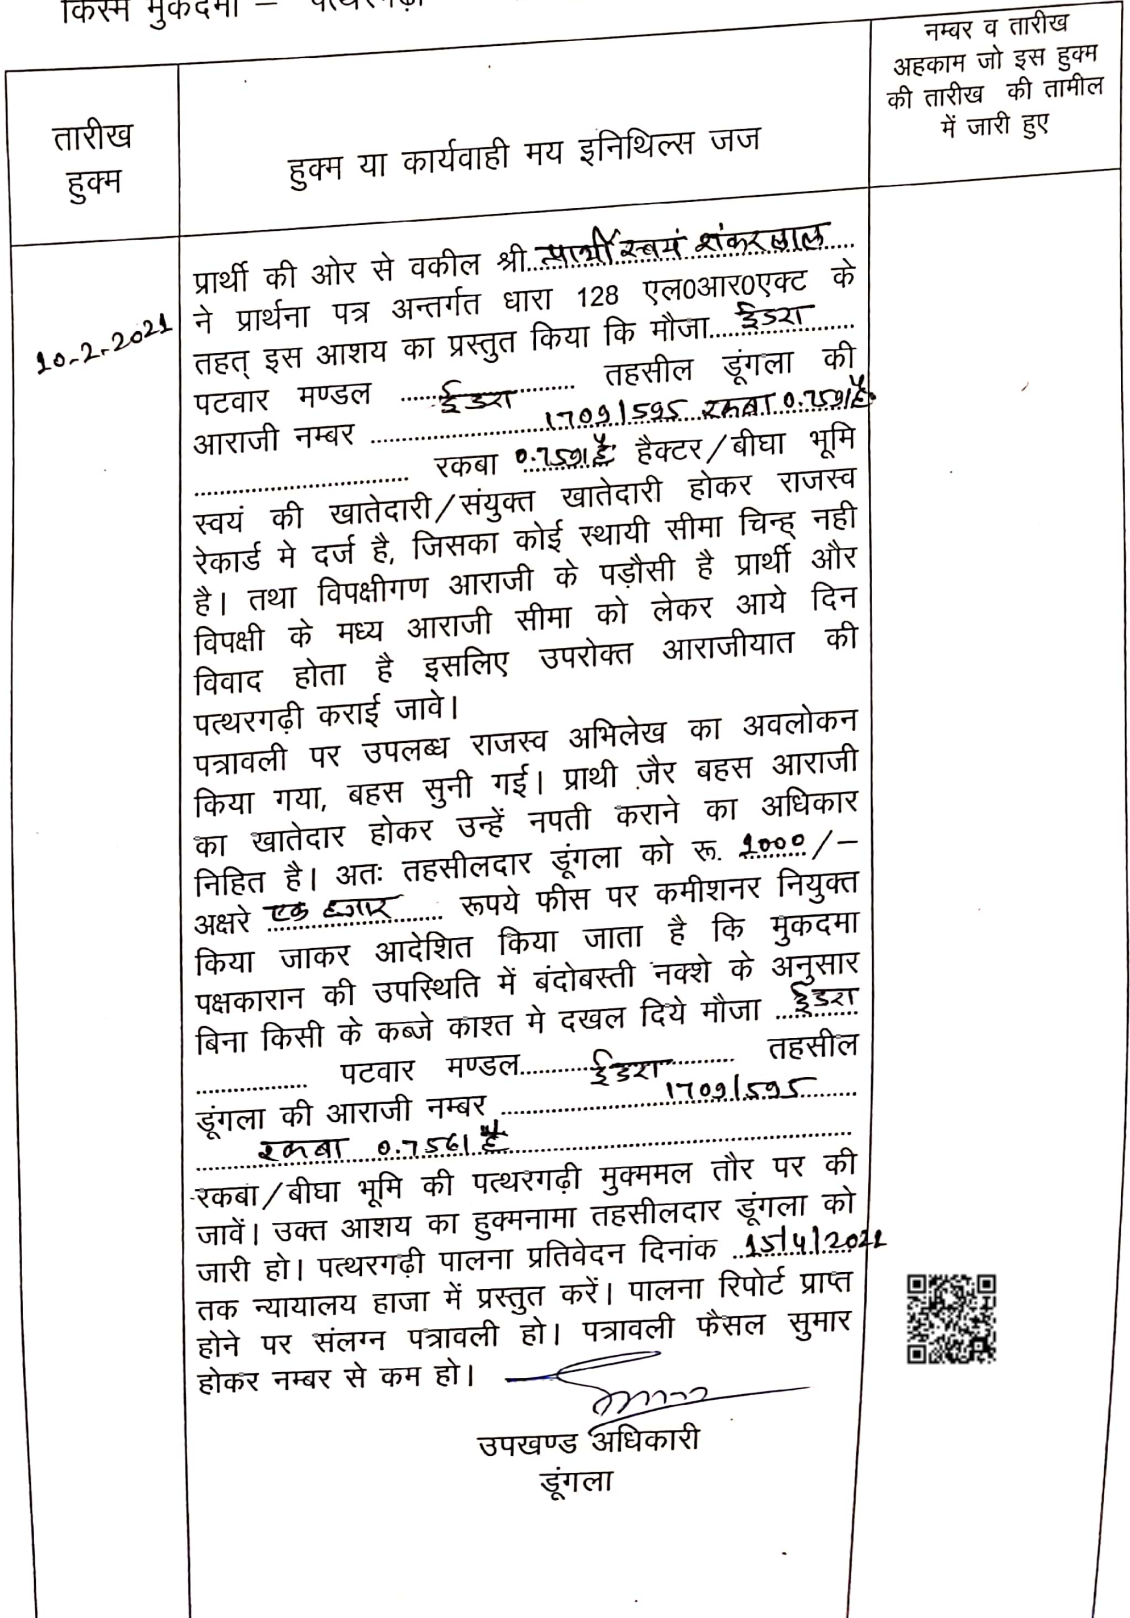 किस्म मुकदमा – पत्थरगढ़ी
तारीख
हुक्म
हुक्म या कार्यवाही मय इनिथिल्स जज
नम्बर व तारीख
अहकाम जो इस हुक्म
की तारीख की तामील
में जारी हुए
10-2-2021
प्रार्थी की ओर से वकील श्री प्रार्थी स्वयं शंकरलाल
ने प्रार्थना पत्र अन्तर्गत धारा 128 एल0आर0एक्ट के
तहत् इस आशय का प्रस्तुत किया कि मौजा ईडरा
पटवार मण्डल ईडरा तहसील डूंगला की
आराजी नम्बर 1709/595 रकबा 0.7591 है.
रकबा 0.7591 है. हैक्टर/बीघा भूमि
स्वयं की खातेदारी/संयुक्त खातेदारी होकर राजस्व
रेकार्ड मे दर्ज है, जिसका कोई स्थायी सीमा चिन्ह् नही
है। तथा विपक्षीगण आराजी के पड़ौसी है प्रार्थी और
विपक्षी के मध्य आराजी सीमा को लेकर आये दिन
विवाद होता है इसलिए उपरोक्त आराजीयात की
पत्थरगढ़ी कराई जावे।
पत्रावली पर उपलब्ध राजस्व अभिलेख का अवलोकन
किया गया, बहस सुनी गई। प्राथी जैर बहस आराजी
का खातेदार होकर उन्हें नपती कराने का अधिकार
निहित है। अतः तहसीलदार डूंगला को रू. 1000/–
अक्षरे एक हजार रूपये फीस पर कमीशनर नियुक्त
किया जाकर आदेशित किया जाता है कि मुकदमा
पक्षकारान की उपस्थिति में बंदोबस्ती नक्शे के अनुसार
बिना किसी के कब्जे काश्त मे दखल दिये मौजा ईडरा
पटवार मण्डल ईडरा तहसील
डूंगला की आराजी नम्बर 1709/595
रकबा 0.7561 है.
रकबा/बीघा भूमि की पत्थरगढ़ी मुक्ममल तौर पर की
जावें। उक्त आशय का हुक्मनामा तहसीलदार डूंगला को
जारी हो। पत्थरगढ़ी पालना प्रतिवेदन दिनांक 15/4/2021
तक न्यायालय हाजा में प्रस्तुत करें। पालना रिपोर्ट प्राप्त
होने पर संलग्न पत्रावली हो। पत्रावली फैसल सुमार
होकर नम्बर से कम हो।
उपखण्ड अधिकारी
डूंगला